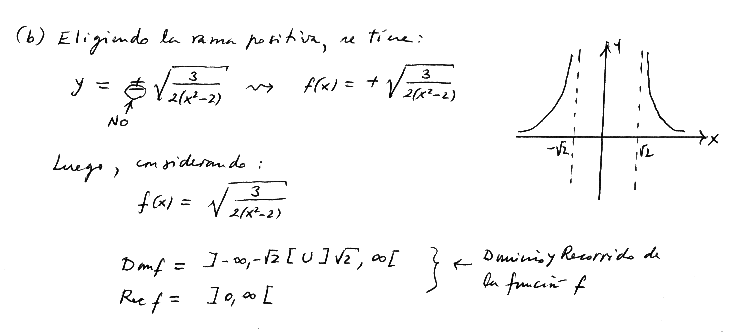 (b) Eligiendo la rama positiva, se tiene:
y = ± √(3/(2(x²-2))) ⇝ f(x) = + √(3/(2(x²-2)))
NO
y
x
-√2
√2
Luego, considerando:
f(x) = √(3/(2(x²-2)))
Dom f = ]-∞,-√2[ U ]√2, ∞[
Rec f = ]0, ∞[
} ← Dominio y Recorrido de
la función f